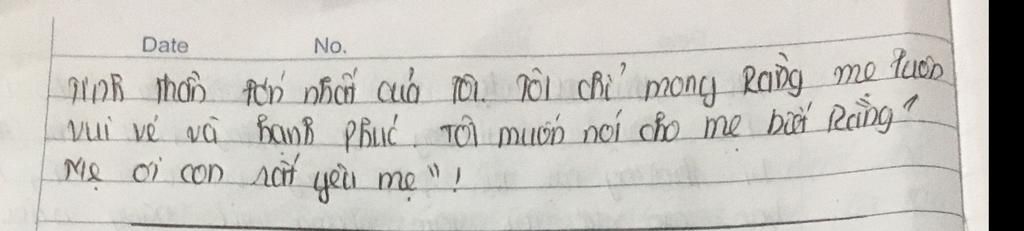 Date No.
tinh thần lớn nhất của tôi. Tôi chỉ mong Rằng mẹ luôn
vui vẻ và hạnh phúc. Tôi muốn nói cho mẹ biết Rằng "
Mẹ ơi con rất yêu mẹ" !